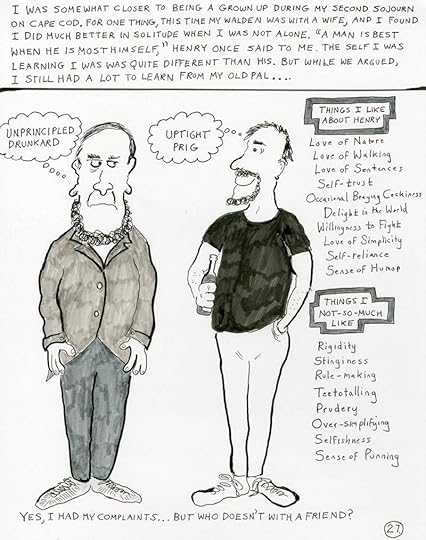 I WAS SOMEWHAT CLOSER TO BEING A GROWN UP DURING MY SECOND SOJOURN
ON CAPE COD. FOR ONE THING, THIS TIME MY WALDEN WAS WITH A WIFE, AND I FOUND
I DID MUCH BETTER IN SOLITUDE WHEN I WAS NOT ALONE. "A MAN IS BEST
WHEN HE IS MOST HIMSELF," HENRY ONCE SAID TO ME. THE SELF I WAS
LEARNING I WAS WAS QUITE DIFFERENT THAN HIS. BUT WHILE WE ARGUED,
I STILL HAD A LOT TO LEARN FROM MY OLD PAL....
UNPRINCIPLED
DRUNKARD
UPTIGHT
PRIG
THINGS I LIKE
ABOUT HENRY
Love of Nature
Love of Walking
Love of Sentences
Self-trust
Occasional Braying Cockiness
Delight in the World
Willingness to Fight
Love of Simplicity
Self-reliance
Sense of Humor
THINGS I
NOT-SO-MUCH
LIKE
Rigidity
Stinginess
Rule-making
Teetotalling
Prudery
Over-simplifying
Selfishness
Sense of Punning
YES, I HAD MY COMPLAINTS... BUT WHO DOESN'T WITH A FRIEND?
27